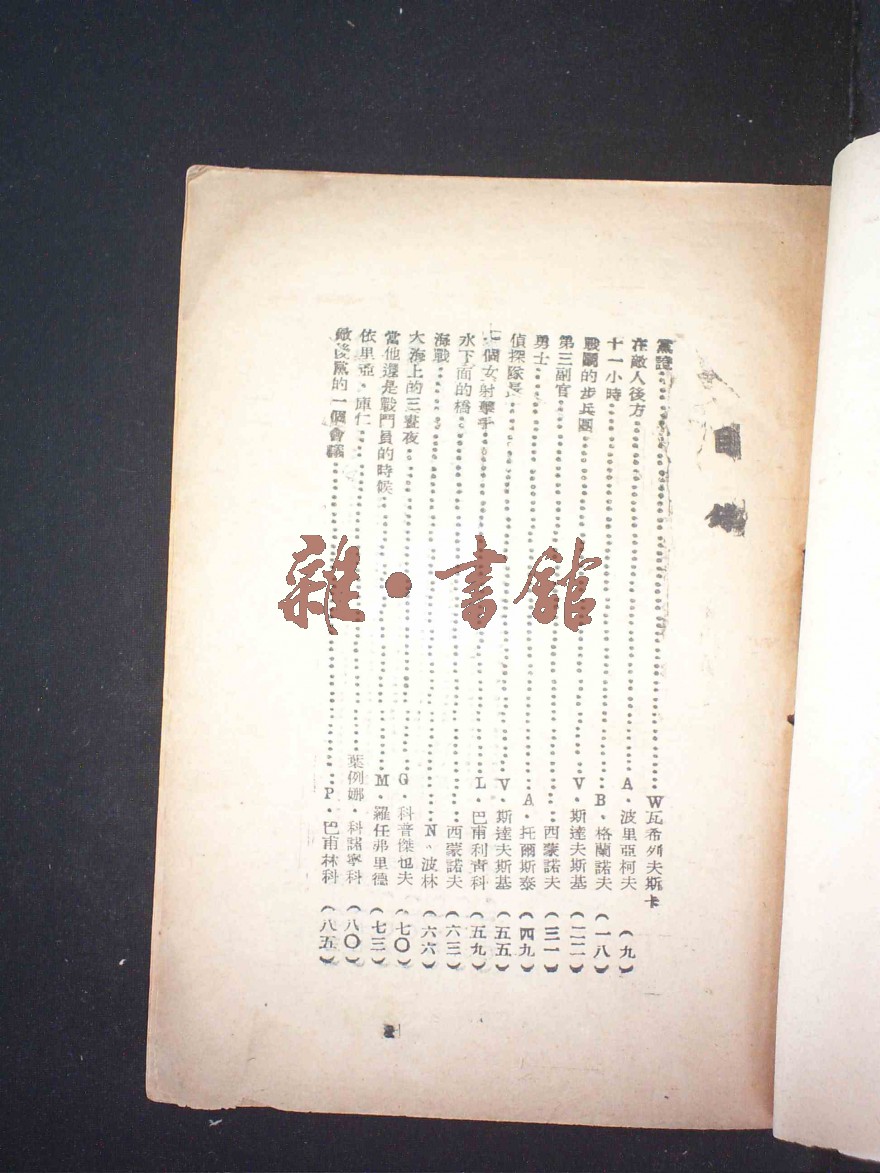 目錄
黨證……W瓦希列夫斯卡
在敵人後方……A·波里亞柯夫（九）
十一小時……B·格蘭諾夫（一八）
戰鬭的步兵團……V·斯達夫斯基（二二）
第三副官……西蒙諾夫（三一）
勇士……A·托爾斯泰（四九）
偵探隊長……V·斯達夫斯基（五五）
一個女射擊手……L·巴甫利青科（五九）
水下面的橋……西蒙諾夫（六三）
海戰……N·波林（六六）
大海上的三晝夜……G·科普傑也夫（七〇）
當他還是戰鬥員的時候……M·羅任弗里德（七三）
依里亞·庫仁……葉例娜·科諾寧科（八〇）
敵後黨的一個會議……P·巴甫林科（八五）
雜·書館